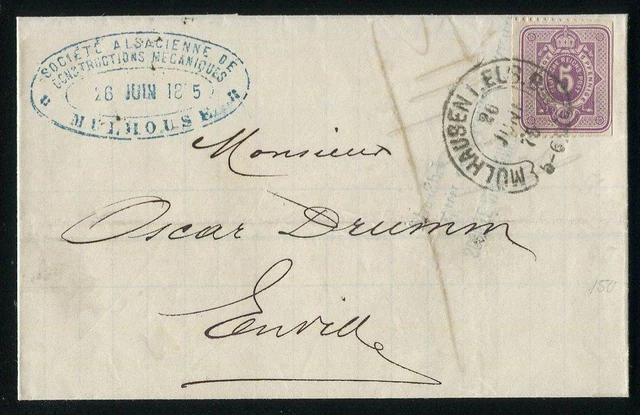 SOCIÉTÉ ALSACIENNE DE
CONSTRUCTIONS MÉCANIQUES
26 JUIN 1875
MULHOUSE
5
PFENNIGE
MÜLHAUSEN I. ELS.
26
JUNI
75
5-6
Monsieur
Oscar Drumm
Enville
150